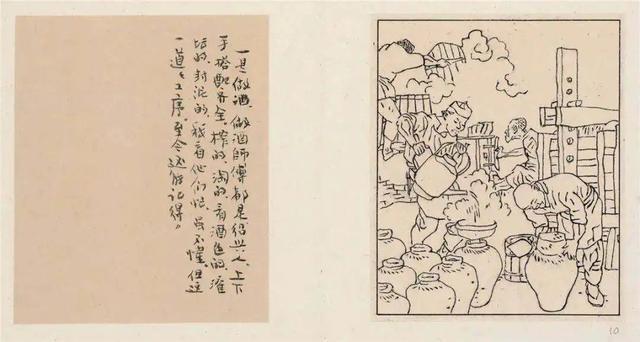 一是做酒，做酒師傅都是绍兴人，上下
手搭配齐全，榨的、淘的、看酒色的、灌
坛的、封泥的，我看他们忙，虽不懂，但这
一道々工序，至今还能记得。
10